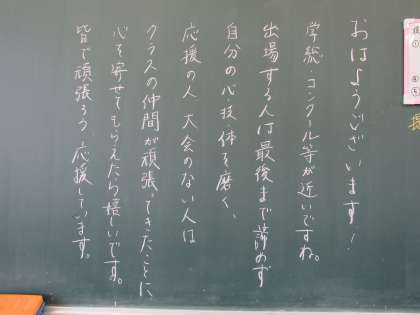 おはようございます!
学総・コンクール等が近いですね。
出場する人は最後まで諦めず
自分の心・技・体を磨く、
応援の人 大会のない人は
クラスの仲間が頑張ってきたことに
心を寄せてもらえたら嬉しいです。
皆で頑張ろう 応援しています。